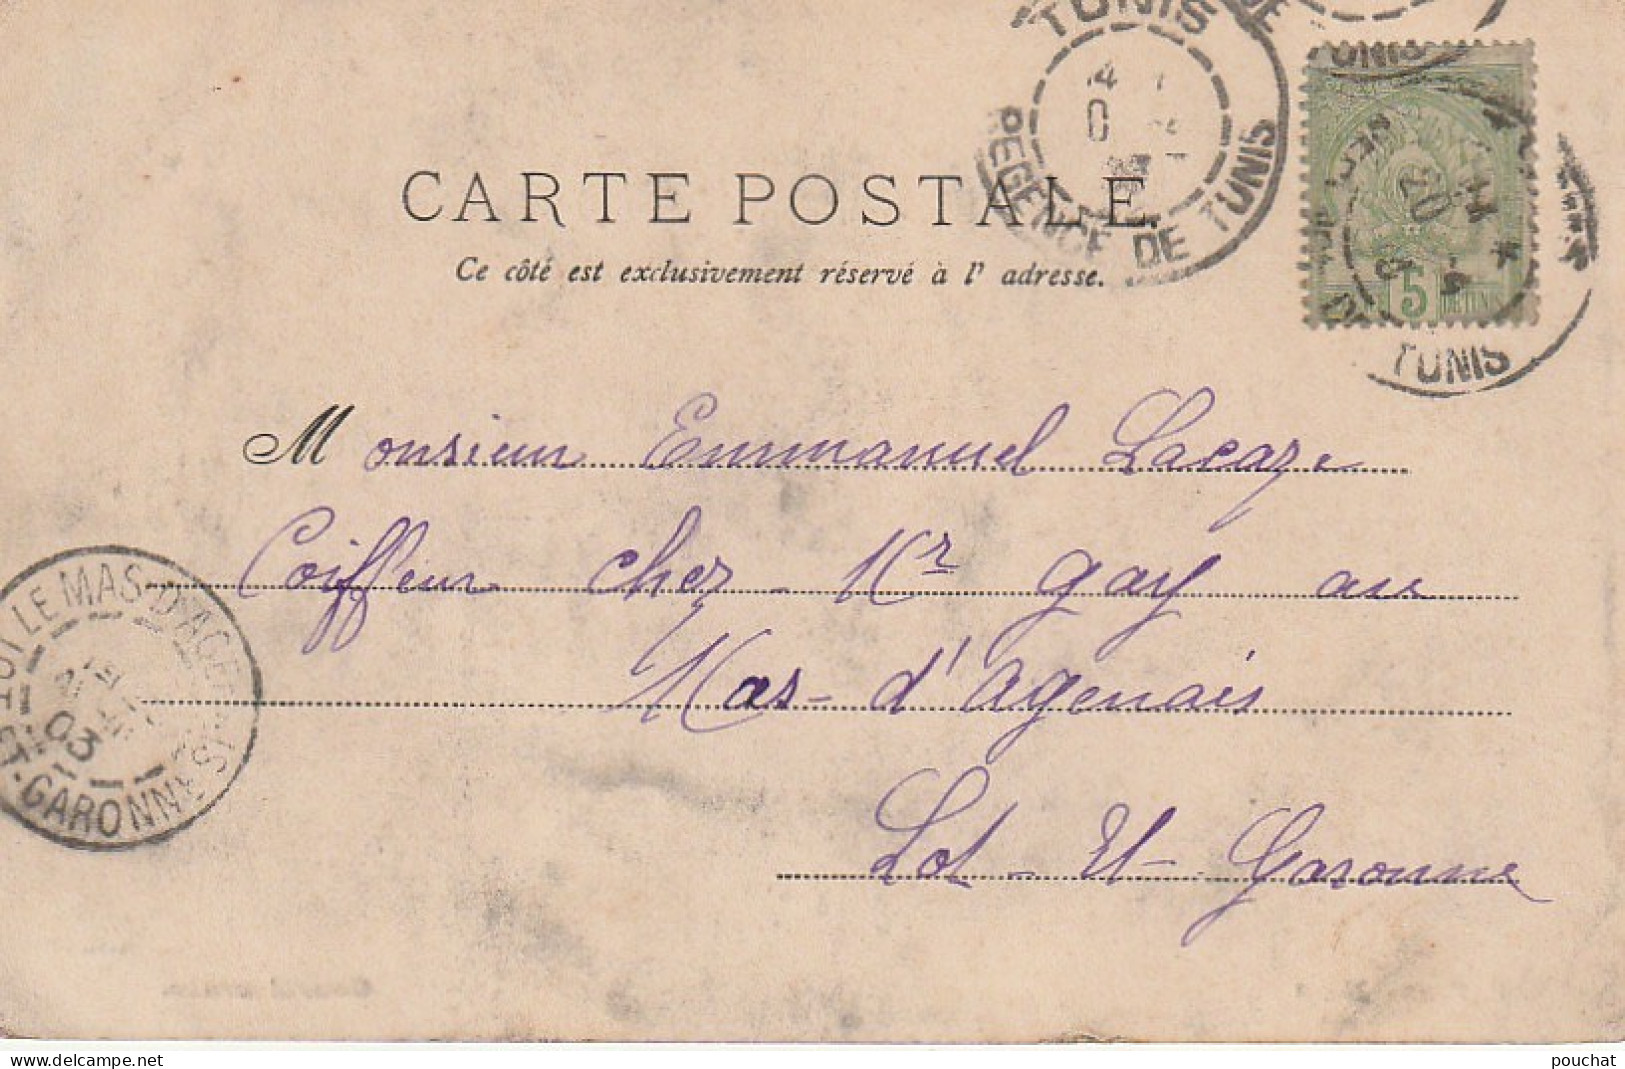 TUNIS
REGENCE DE TUNIS
DE
TUNIS
TUNIS
5
CARTE POSTALE
Ce côté est exclusivement réservé à l' adresse.
Monsieur Emmanuel Lacaze
Coiffeur chez Mr Gay au
Mas-d'Agenais
Lot-Et-Garonne
LE MAS-D'AGENAIS
03
LOT-ET-GARONNE
www.delcampe.net
pouchat